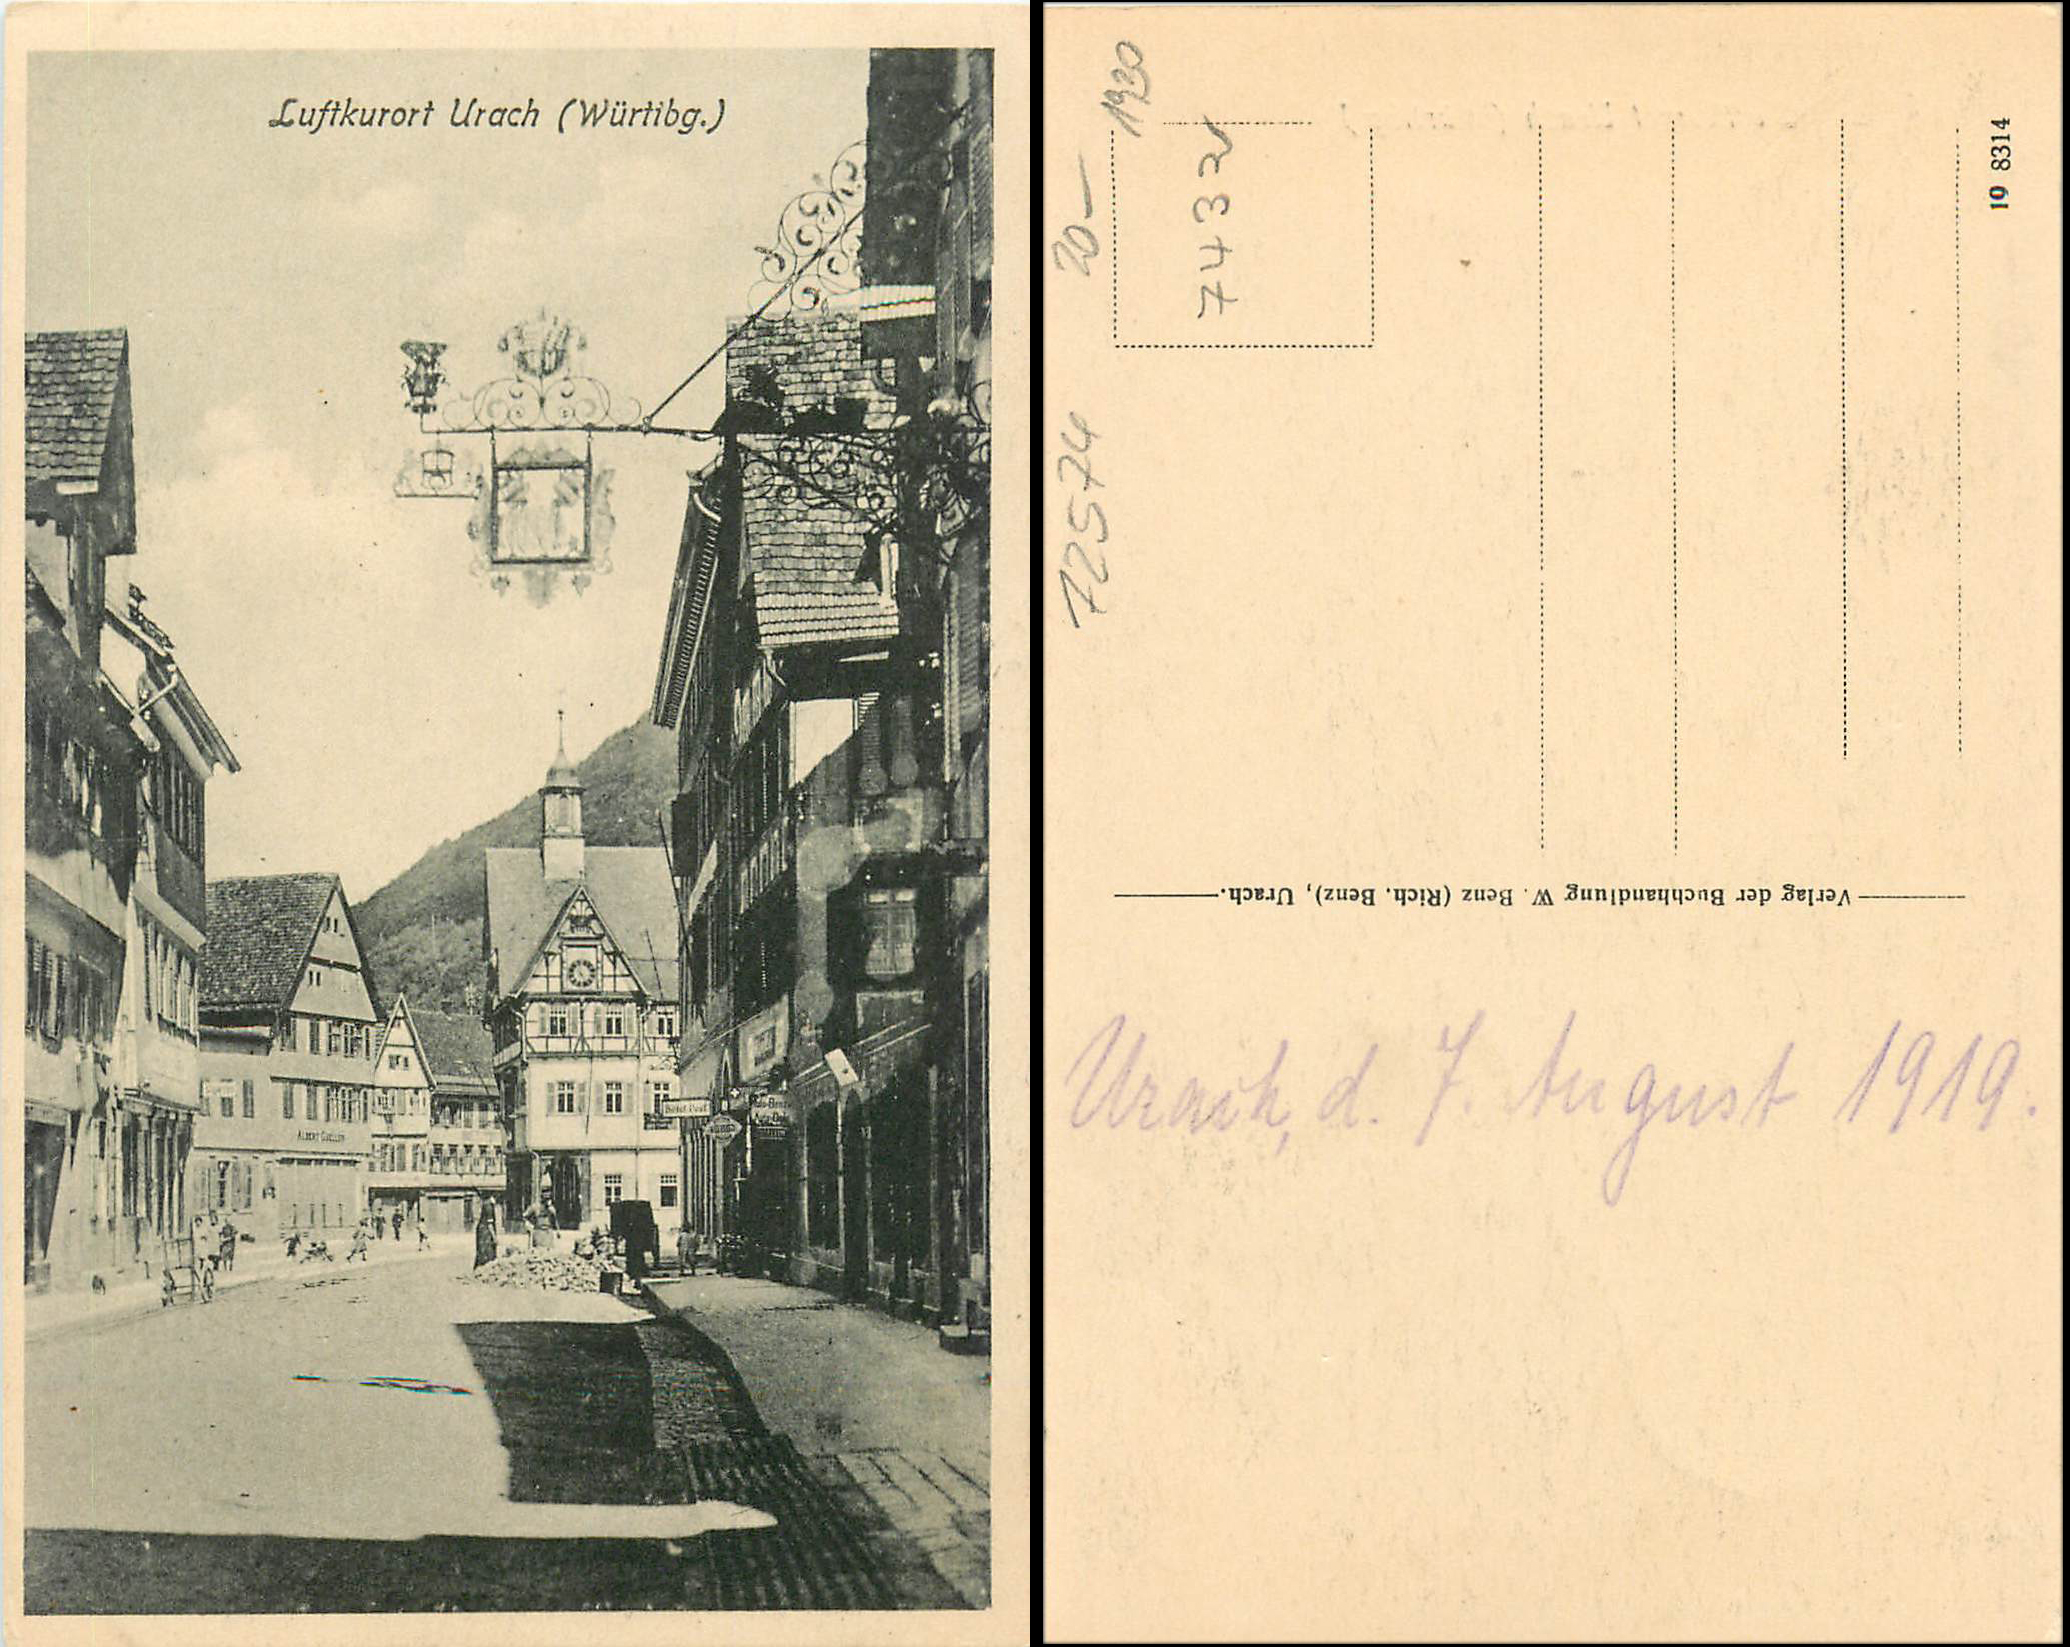 Luftkurort Urach (Würtibg.)
ALBERT GUELLER
Hotel Post
1930
20—
7432
72574
19 8314
Verlag der Buchhandlung W. Benz (Rich. Benz), Urach.
Urach, d. 7. August 1919.